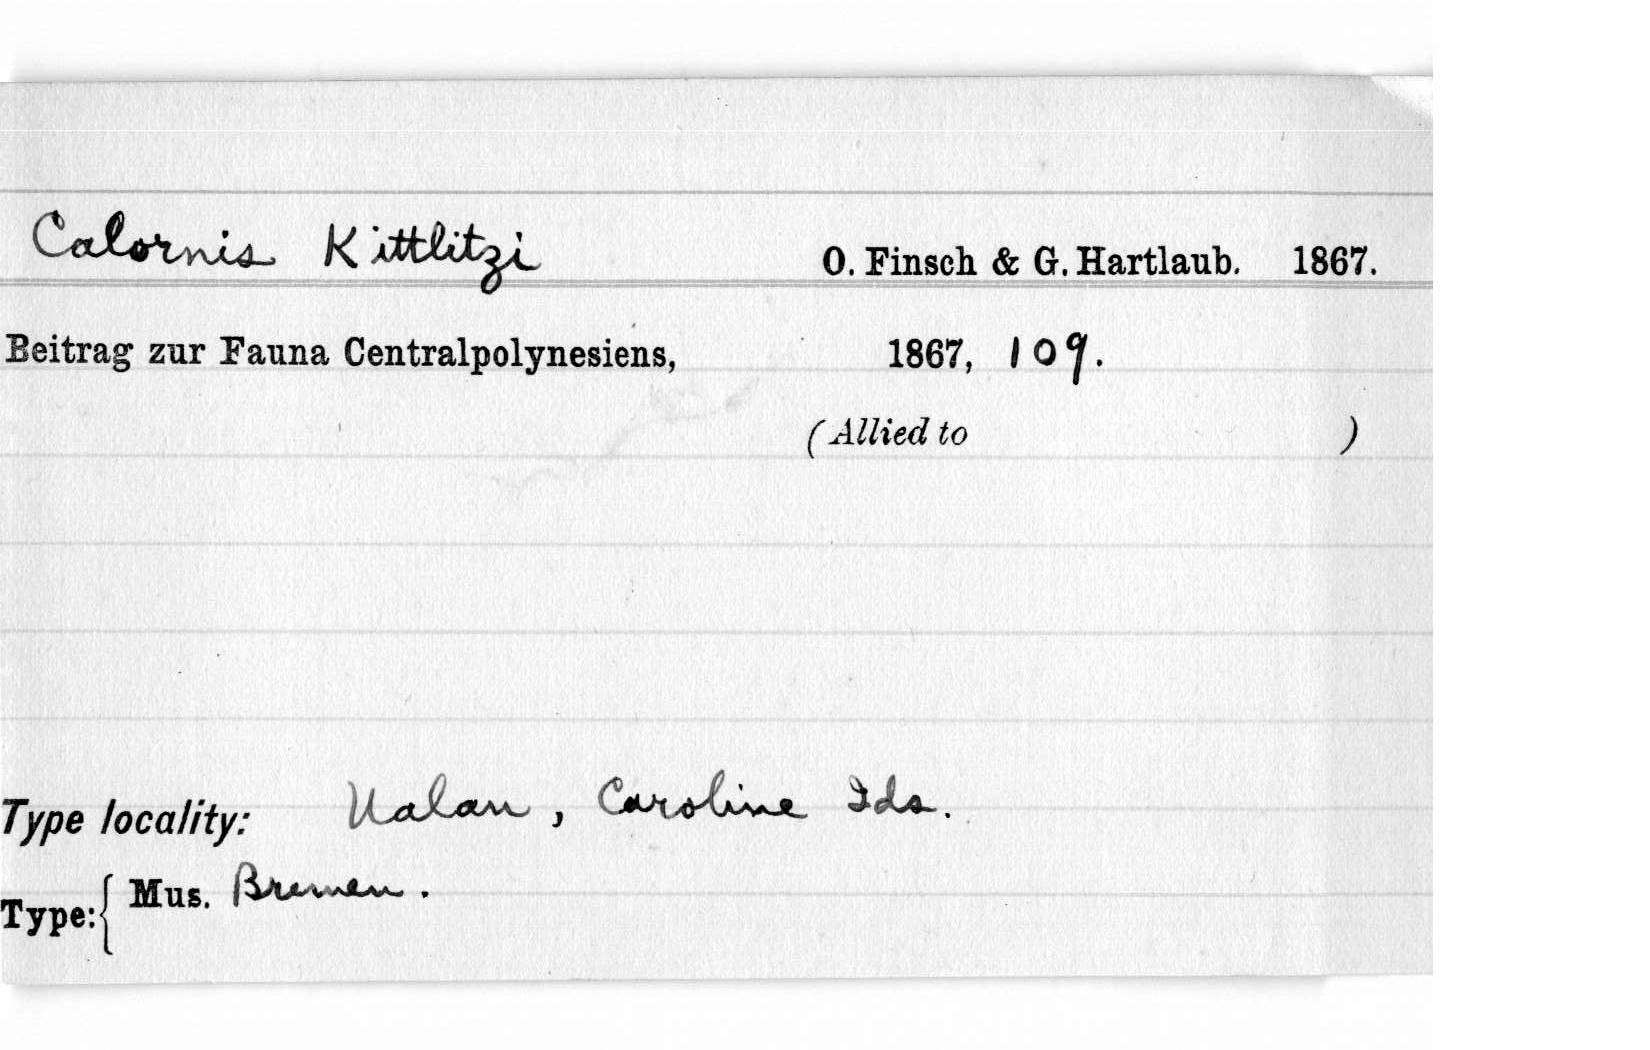 Calornis Kittlitzi O. Finsch & G. Hartlaub. 1867.
Beitrag zur Fauna Centralpolynesiens, 1867, 109.
(Allied to )
Type locality: Ualan, Caroline Ids.
Type: { Mus. Bremen.